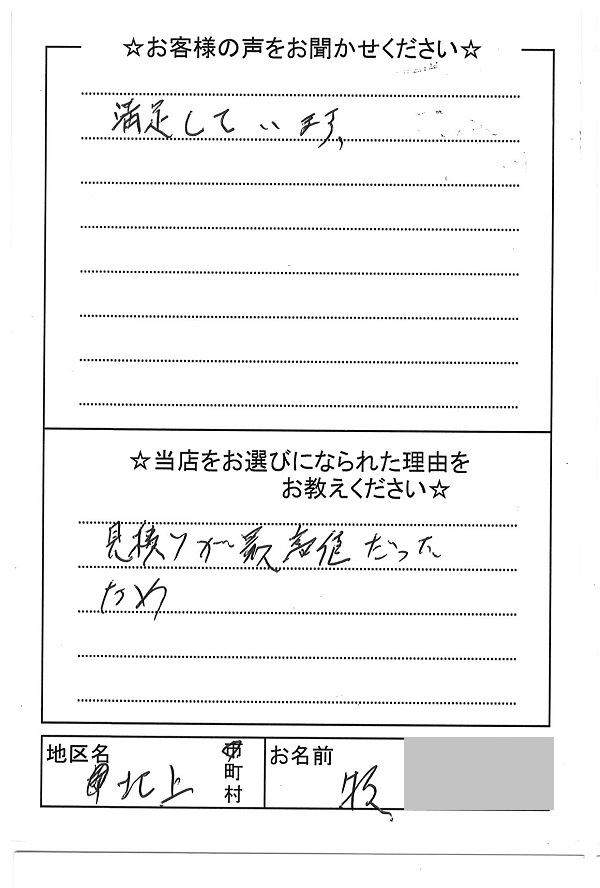 ☆お客様の声をお聞かせください☆
満足しています。
☆当店をお選びになられた理由を
お教えください☆
見積りが最高値だった
ため
地区名
北上
市
町
村
お名前